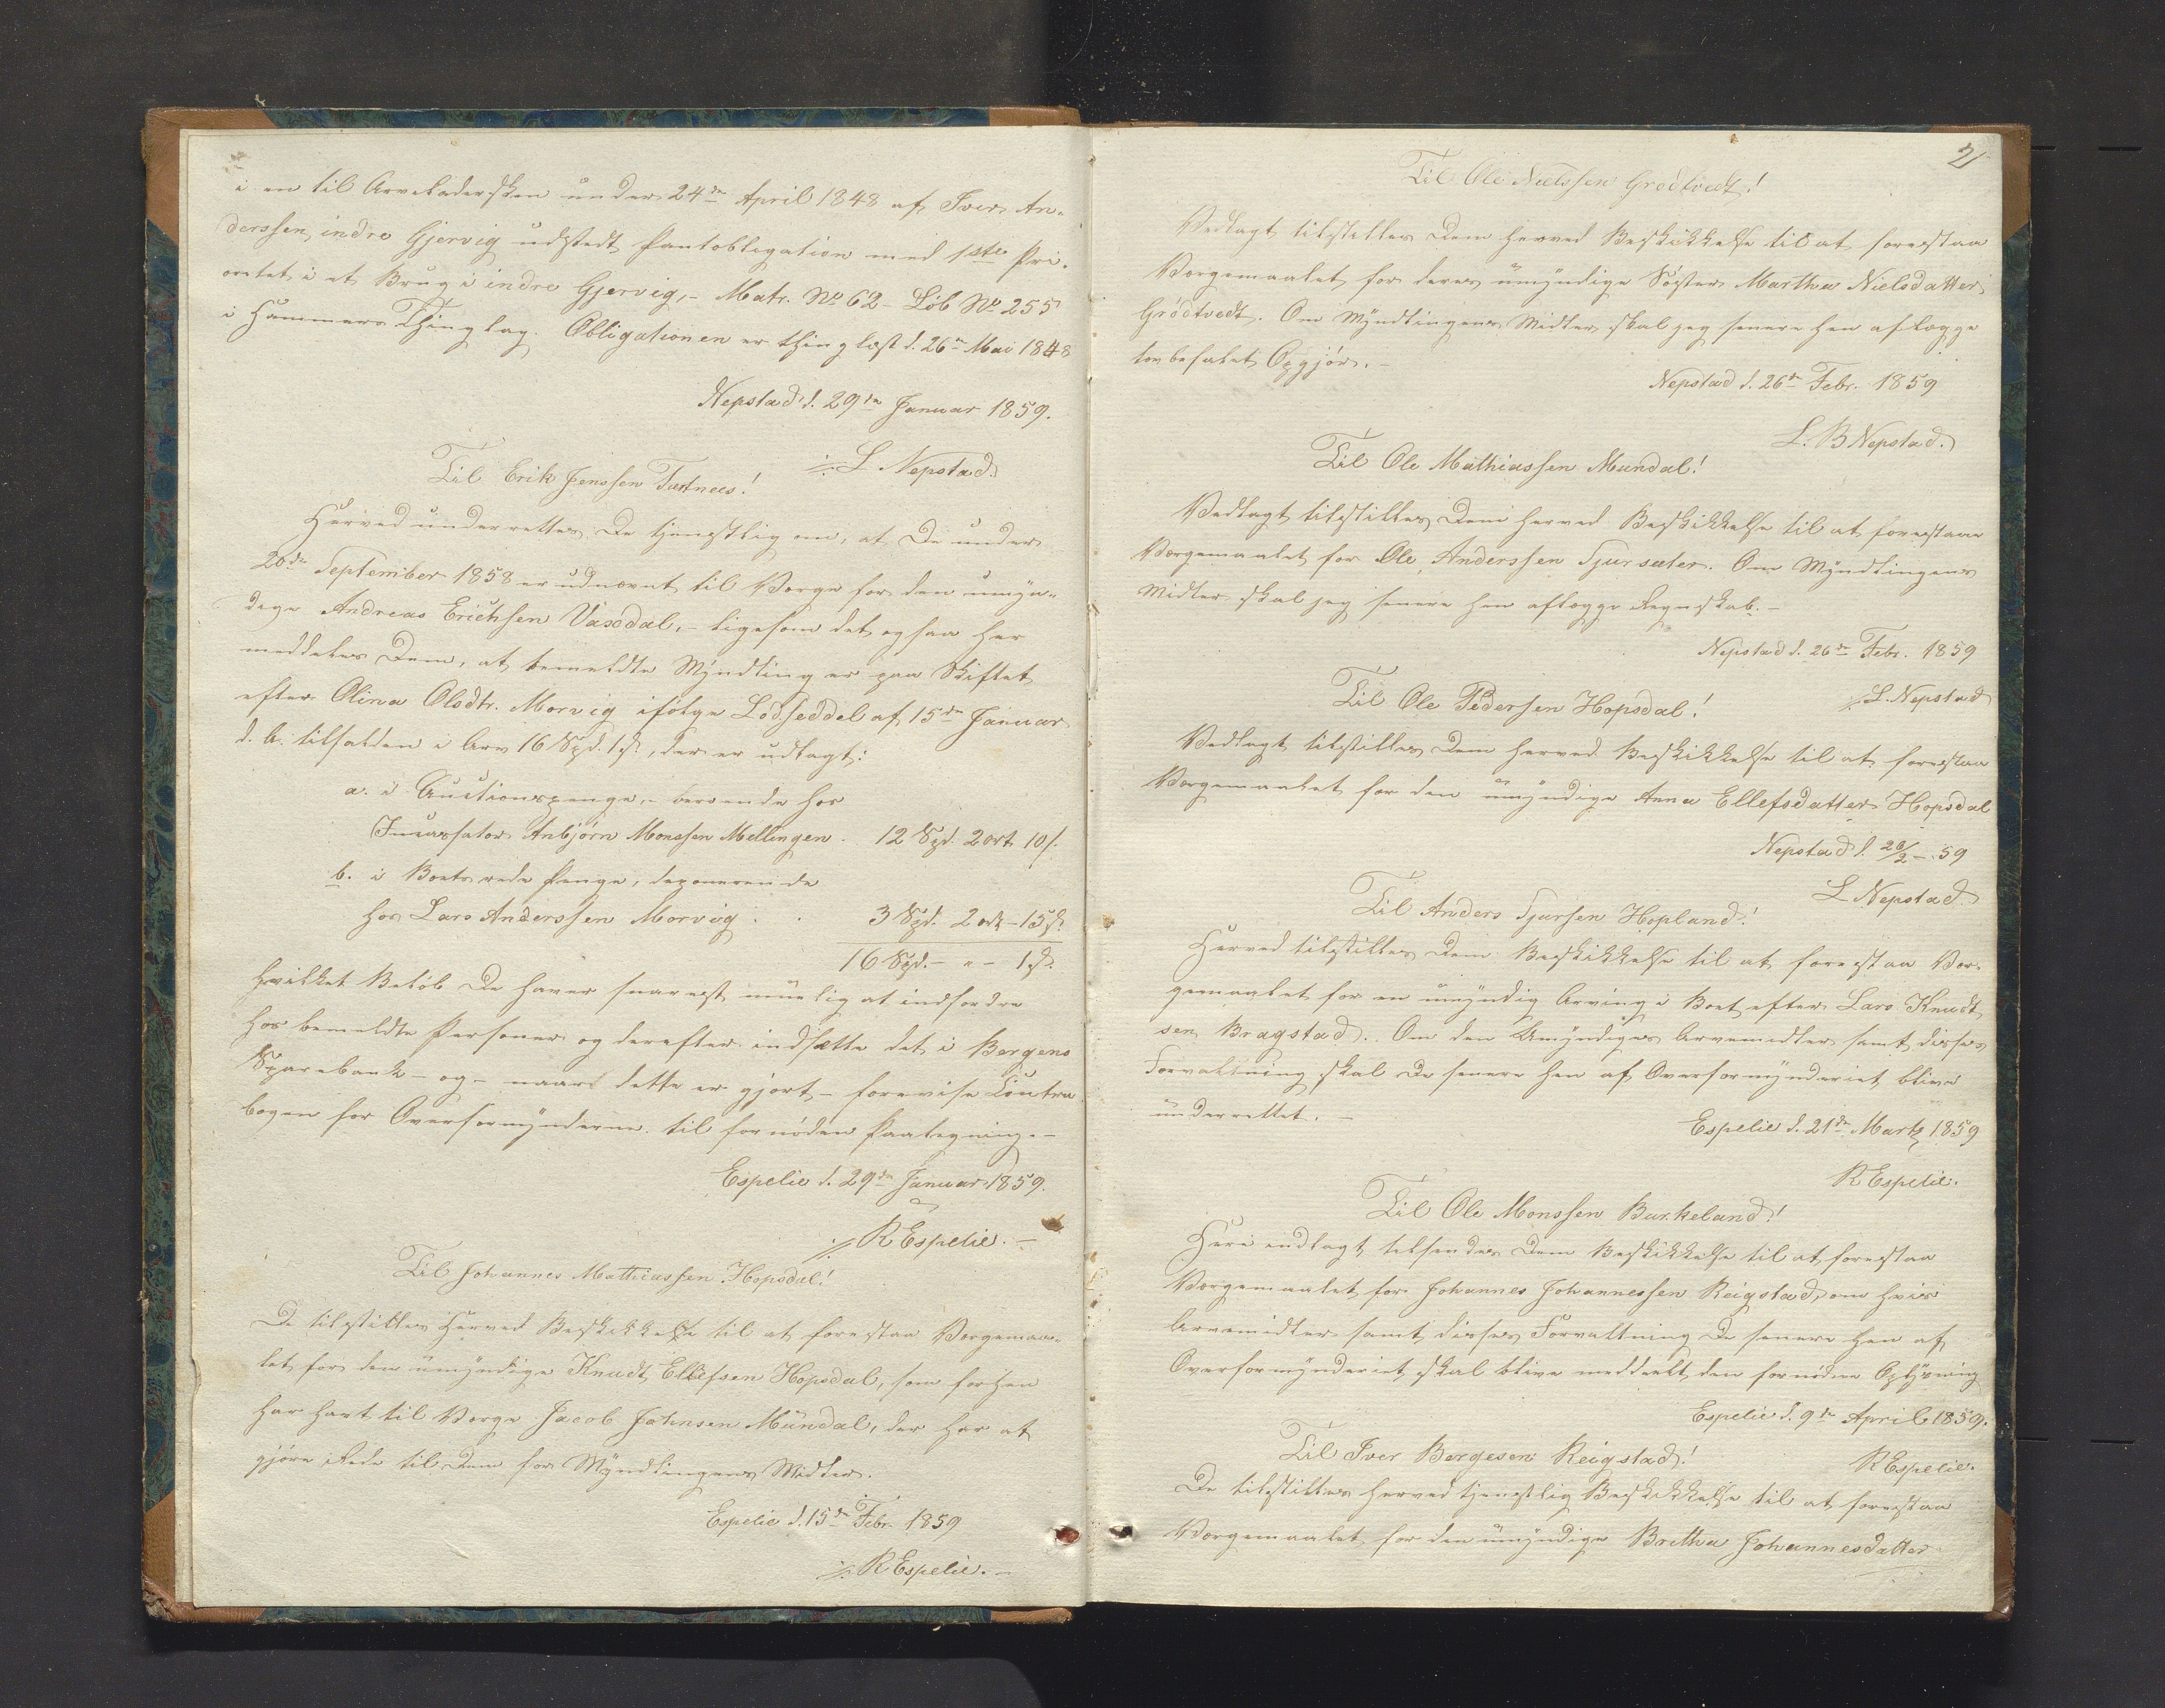 i en til Arveladersken under 24de April 1848 af Iver An-
derssen indre Gjervig udstedt Pantobligation med 1ste Pri-
oritet i et Brug i indre Gjervig, - Matr. No 62 - Løb No 255
i Hammers Thinglag. Obligationen er thinglæst d. 26de Mai 1848
Nepstad d. 29de Januar 1859.
L Nepstad.
Til Erik Jenssen Tertnees!
Herved underrettes De tjenstlig om, at De under
20de September 1858 er udnævnt til Værge for den umyn-
dige Andreas Erichsen Vasedal, - ligesom det ogsaa her
meddeles Dem, at bemeldte Myndling er paa Skiftet
efter Olina Olsdtr. Morvig ifølge Lodseddel af 15de Januar
d. A. tilfalden i Arv 16 Spd. 1 s., der er udlagt:
a. i Auctionspenge, - beroende hos
Incassator Anbjørn Monssen Mellingen - 12 Spd. 2 ort 10 s.
b. i Boets rede Penge, deponerende
hos Lars Anderssen Morvig . . 3 Spd. 2 ort - 15 s.
16 Spd. - " - 1 s.
hvilket Beløb De haver snarest muelig at indfordre
hos bemeldte Personer og derefter indsætte det i Bergens
Sparebank - og - naar dette er gjort - forevise Contra
bogen for Overformynderne til fornøden Paategning. -
Espelie d. 29de Januar 1859.
R Espelie. -
Til Johannes Mathiassen Hopsdal!
De tilstilles herved Beskikkelse til at forestaa Værgemaa-
let for den umyndige Knudt Ellefsen Hopsdal, som forhen
har havt til Værge Jacob Johnsen Mundal, der har at
gjøre Rede til Dem for Myndlingens Midler.
Espelie d. 15de Febr 1859
R Espelie. -
2
Til Ole Nielssen Grødtvedt!
Vedlagt tilstilles Dem herved Beskikkelse til at forestaa
Værgemaalet for deres umyndige Søster Martha Nielsdatter
Grødtvedt. Om Myndlingens Midler skal jeg senere hen aflægge
lovbefalet Opgjør. -
Nepstad d. 26de Febr. 1859
L. B Nepstad.
Til Ole Mathiassen Mundal!
Vedlagt tilstilles Dem herved Beskikkelse til at forestaae
Værgemaalet for Ole Anderssen Tjursæter. Om Myndlingens
Midler skal jeg senere hen aflægge Regnskab. -
Nepstad d. 26de Febr. 1859
L. Nepstad
Til Ole Pedersen Hopsdal!
Vedlagt tilstilles Dem herved Beskikkelse til at forestaa
Værgemaalet for den umyndige Anna Ellefsdatter Hopsdal
Nepstad d. 26/2 - 59
L Nepstad
Til Anders Tjursen Hopland!
Herved tilstilles Dem Beskikkelse til at forestaa Vær-
gemaalet for en umyndig Arving i Boet efter Lars Knudt
sen Bragstad. Om den Umyndiges Arvemidler samt disses
Forvaltning skal De senere hen af Overformynderiet blive
underrettet. -
Espelie d. 21de Marts 1859
R Espelie.
Til Ole Monssen Burkeland!
Heri indlagt tilsendes Dem Beskikkelse til at forestaa
Værgemaalet for Johannes Johannessen Reigstad, om hvis
Arvemidler samt disses Forvaltning De senere hen af
Overformynderiet skal blive meddeelt den fornødne Oplysning
Espelie d. 9de April 1859.
R Espelie.
Til Iver Børgesen Reigstad!
De tilstilles herved tjenstlig Beskikkelse til at forestaa
Værgemaalet for den umyndige Britha Johannesdatter